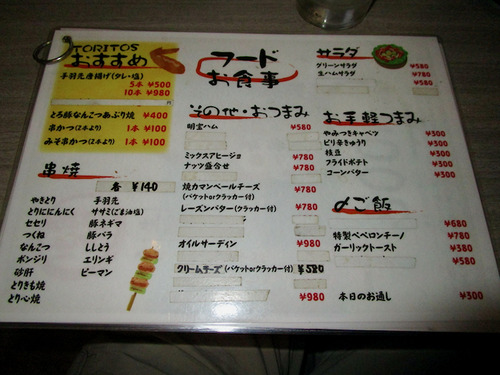 TORITOS
おすすめ
手羽先唐揚げ(タレ・塩)
5本 ¥500
10本 ¥980
とろ豚なんこつあぶり焼 ¥400
串かつ(2本より) 1本 ¥100
みそ串かつ(2本より) 1本 ¥100
串焼
各 ¥140
やきとり 手羽先
とりにんにく ササミ(ごま油塩)
セセリ 豚ネギマ
つくね 豚バラ
なんこつ ししとう
ボンジリ エリンギ
砂肝 ピーマン
とりきも焼
とり心焼
フード
お食事
その他・おつまみ
明宝ハム ¥580
ミックスアヒージョ ¥780
ナッツ盛合せ ¥780
焼カマンベールチーズ ¥780
(バケットorクラッカー付)
レーズンバター(クラッカー付) ¥780
オイルサーディン ¥980
クリームチーズ (バケットorクラッカー付) ¥580
¥980
サラダ
グリーンサラダ ¥580
生ハムサラダ ¥780
¥580
お手軽つまみ
やみつきキャベツ ¥300
ピリ辛きゅうり ¥300
枝豆 ¥300
フライドポテト ¥300
コーンバター ¥300
〆ご飯
¥680
特製ペペロンチーノ ¥780
ガーリックトースト ¥380
¥580
本日のお通し ¥300